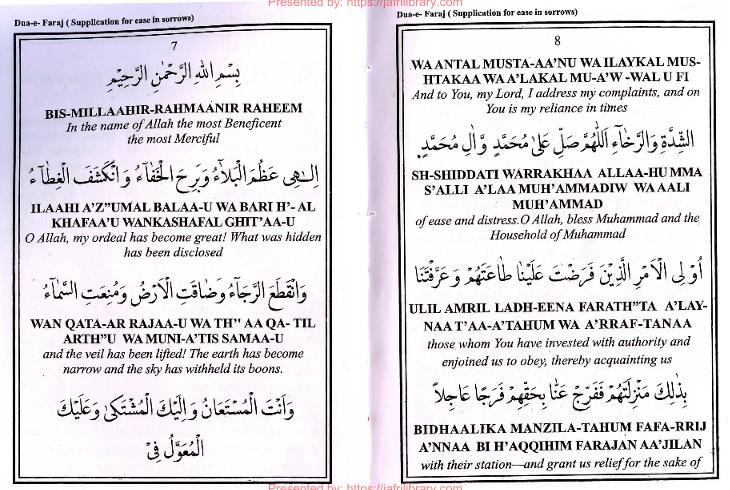 Presented by: https://jafrilibrary.com/
Dua-e- Faraj ( Supplication for ease in sorrows)
7
بِسْمِ اللهِ الرَّحْمٰنِ الرَّحِيْمِ
BIS-MILLAAHIR-RAHMAÁNIR RAHEEM
In the name of Allah the most Beneficent
the most Merciful
اِلٰـهِىْ عَظُمَ الْبَلَاۤءُ وَبَرِحَ الْخَفَاۤءُ وَ انْكَشَفَ الْغِطَاۤءُ
ILAAHI A'Z"UMAL BALAA-U WA BARI H'- AL
KHAFAA'U WANKASHAFAL GHIT'AA-U
O Allah, my ordeal has become great! What was hidden
has been disclosed
وَانْقَطَعَ الرَّجَاۤءُ وَضَاقَتِ الْاَرْضُ وَمُنِعَتِ السَّمَاۤءُ
WAN QATA-AR RAJAA-U WA TH'' AA QA- TIL
ARTH"U WA MUNI-A'TIS SAMAA-U
and the veil has been lifted! The earth has become
narrow and the sky has withheld its boons.
وَاَنْتَ الْمُسْتَعَانُ وَاِلَيْكَ الْمُشْتَكٰى وَعَلَيْكَ
الْمُعَوَّلُ فِىْ
Dua-e- Faraj ( Supplication for ease in sorrows)
8
WA ANTAL MUSTA-AA'NU WA ILAYKAL MUS-
HTAKAA WA A'LAKAL MU-A'W -WAL U FI
And to You, my Lord, I address my complaints, and on
You is my reliance in times
الشِّدَّةِ وَالرَّخَاۤءِ اَللّٰهُمَّ صَلِّ عَلٰى مُحَمَّدٍ وَّاٰلِ مُحَمَّدٍ
SH-SHIDDATI WARRAKHAA ALLAA-HU MMA
S'ALLI A'LAA MUH'AMMADIW WA AALI
MUH'AMMAD
of ease and distress.O Allah, bless Muhammad and the
Household of Muhammad
اُوْلِى الْاَمْرِ الَّذِيْنَ فَرَضْتَ عَلَيْنَا طَاعَتَهُمْ وَعَرَّفْتَنَا
ULIL AMRIL LADH-EENA FARATH"TA A'LAY-
NAA T'AA-A'TAHUM WA A'RRAF-TANAA
those whom You have invested with authority and
enjoined us to obey, thereby acquainting us
بِذٰلِكَ مَنْزِلَتَهُمْ فَفَرِّجْ عَنَّا بِحَقِّهِمْ فَرَجًا عَاجِلاً
BIDHAALIKA MANZILA-TAHUM FAFA-RRIJ
A'NNAA BI H'AQQIHIM FARAJAN AA'JILAN
with their station—and grant us relief for the sake of
Presented by: https://jafrilibrary.com/